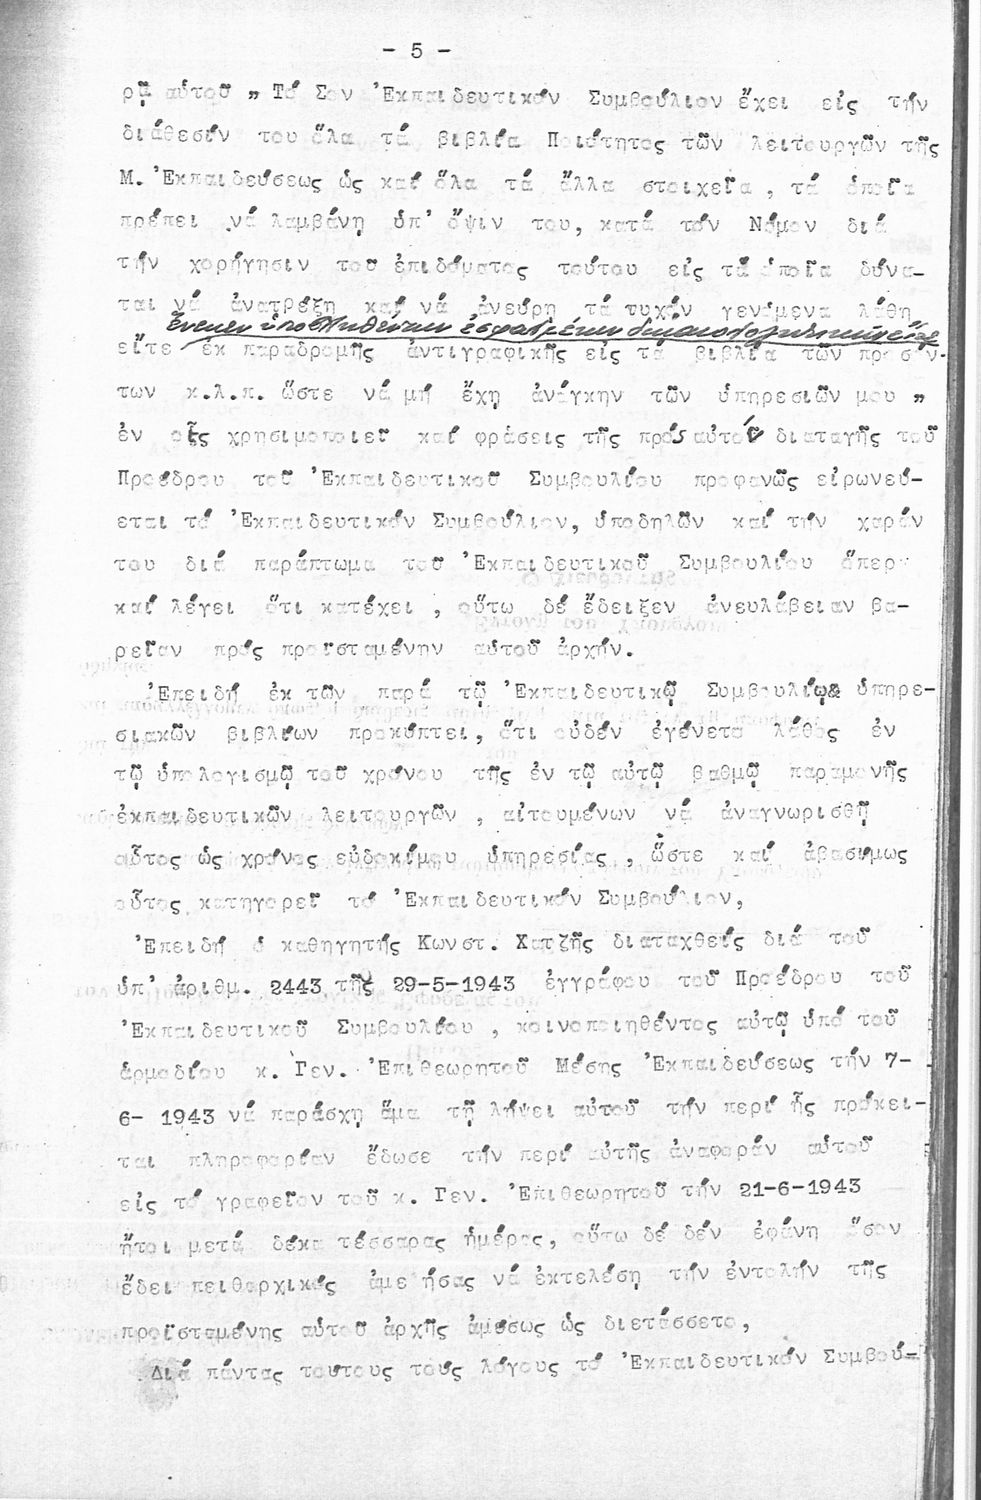 - 5 -
ρᾷ αὑτοῦ „ Τό Σον Ἐκπαιδευτικόν Συμβούλιον ἔχει εἰς τήν
διάθεσίν του ὅλα τά βιβλία Ποιότητος τῶν λειτουργῶν τῆς
Μ. Ἐκπαιδεύσεως ὡς καί ὅλα τά ἄλλα στοιχεῖα , τά ὁποῖα
πρέπει νά λαμβάνῃ ὑπ' ὄψιν του, κατά τόν Νόμον διά
τήν χορήγησιν τοῦ ἐπιδόματος τούτου εἰς τά ὁποῖα δύνα-
ται νά ἀνατρέξῃ καί νά ἀνεύρῃ τά τυχόν γενόμενα λάθη
ἕνεκεν ὑποβληθέντων ἐσφαλμένων δικαιολογητικῶν εἴτε
εἴτε ἐκ παραδρομῆς ἀντιγραφικῆς εἰς τά βιβλία τῶν προσόν-
των κ.λ.π. ὥστε νά μή ἔχῃ ἀνάγκην τῶν ὑπηρεσιῶν μου „
ἐν οἷς χρησιμοποιεῖ καί φράσεις τῆς πρός αὐτόν διαταγῆς τοῦ
Προέδρου τοῦ Ἐκπαιδευτικοῦ Συμβουλίου προφανῶς εἰρωνεύ-
εται τό Ἐκπαιδευτικόν Συμβούλιον, ὑποδηλῶν καί τήν χαράν
του διά παράπτωμα τοῦ Ἐκπαιδευτικοῦ Συμβουλίου ὅπερ
καί λέγει ὅτι κατέχει , οὕτω δέ ἔδειξεν ἀνευλάβειαν βα-
ρεῖαν πρός προϊσταμένην αὑτοῦ ἀρχήν.
Ἐπειδή ἐκ τῶν παρά τῷ Ἐκπαιδευτικῷ Συμβουλίῳ ὑπηρε-
σιακῶν βιβλίων προκύπτει, ὅτι οὐδέν ἐγένετο λάθος ἐν
τῷ ὑπολογισμῷ τοῦ χρόνου τῆς ἐν τῷ αὐτῷ βαθμῷ παραμονῆς
ἐκπαιδευτικῶν λειτουργῶν , αἰτουμένων νά ἀναγνωρισθῇ
οὗτος ὡς χρόνος εὐδοκίμου ὑπηρεσίας , ὥστε καί ἀβασίμως
οὗτος κατηγορεῖ τό Ἐκπαιδευτικόν Συμβούλιον,
Ἐπειδή ὁ καθηγητής Κωνστ. Χατζῆς διαταχθείς διά τοῦ
ὑπ' ἀριθμ. 2443 τῆς 29-5-1943 ἐγγράφου τοῦ Προέδρου τοῦ
Ἐκπαιδευτικοῦ Συμβουλίου , κοινοποιηθέντος αὐτῷ ὑπό τοῦ
ἁρμοδίου κ. Γεν. Ἐπιθεωρητοῦ Μέσης Ἐκπαιδεύσεως τήν 7-
6- 1943 νά παράσχῃ ἅμα τῇ λήψει αὐτοῦ τήν περί ἧς πρόκει-
ται πληροφορίαν ἔδωσε τήν περί αὐτῆς ἀναφοράν αὑτοῦ
εἰς τό γραφεῖον τοῦ κ. Γεν. Ἐπιθεωρητοῦ τήν 21-6-1943
ἤτοι μετά δέκα τέσσαρας ἡμέρας, οὕτω δέ δέν ἐφάνη ὅσον
ἔδει πειθαρχικός ἀμελήσας νά ἐκτελέσῃ τήν ἐντολήν τῆς
προϊσταμένης αὑτοῦ ἀρχῆς ἀμέσως ὡς διετάσσετο,
Διά πάντας τούτους τούς λόγους τό Ἐκπαιδευτικόν Συμβού-